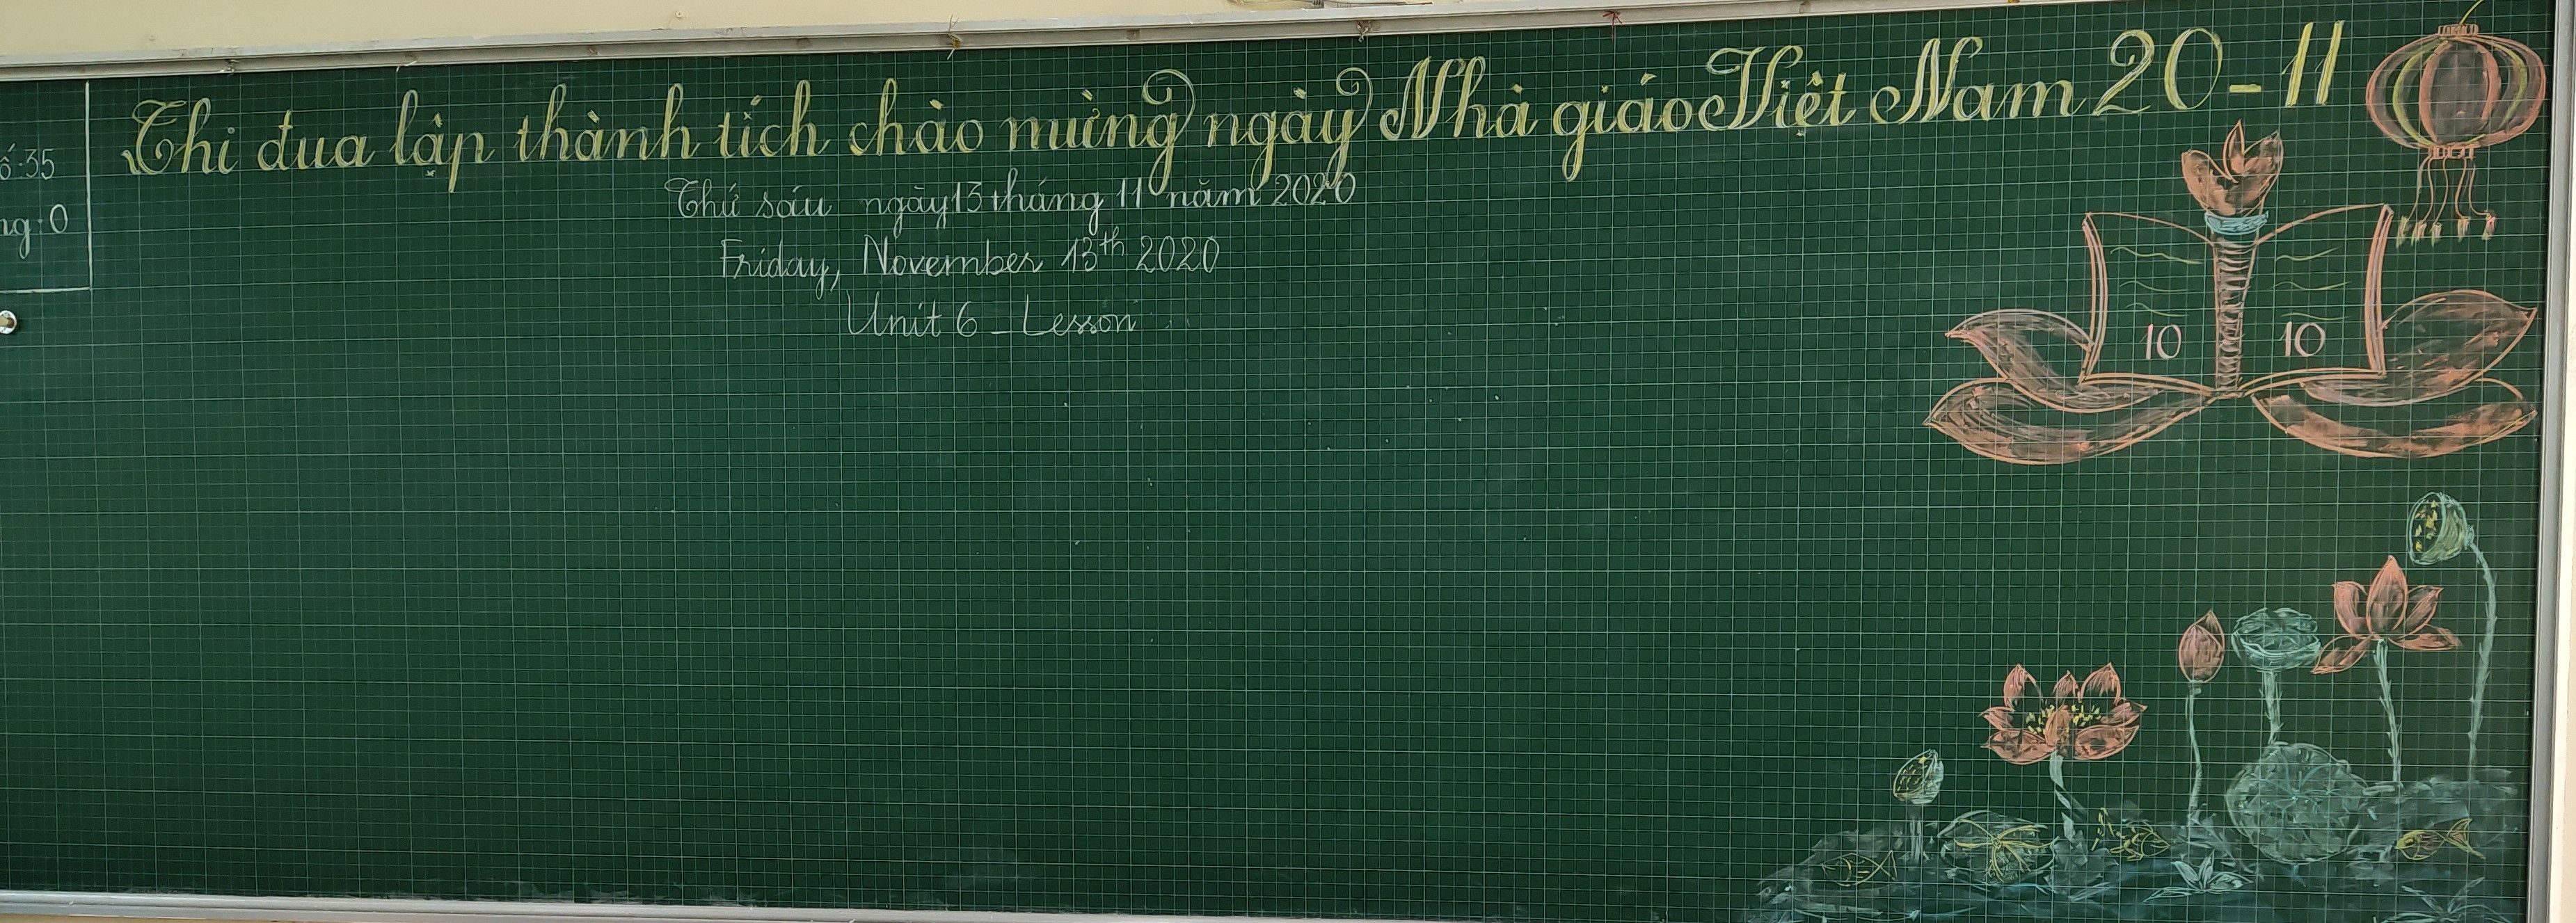 Thi đua lập thành tích chào mừng ngày Nhà giáo Việt Nam 20-11
ố:35
ng:0
Thứ sáu ngày 13 tháng 11 năm 2020
Friday, November 13th 2020
Unit 6 - Lesson
10 10